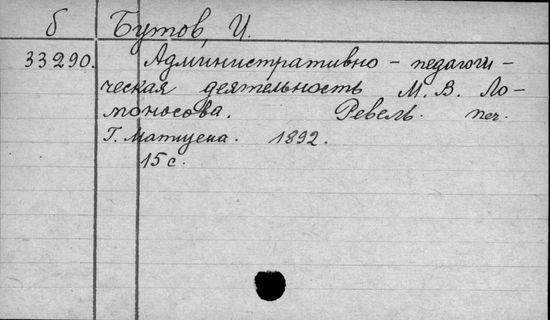 б Бутов, И.
33290. Административно-педагоги-
ческая деятельность М. В. Ло-
моносова. Ревель. печ.
Г. Матиуена. 1892.
15 с.